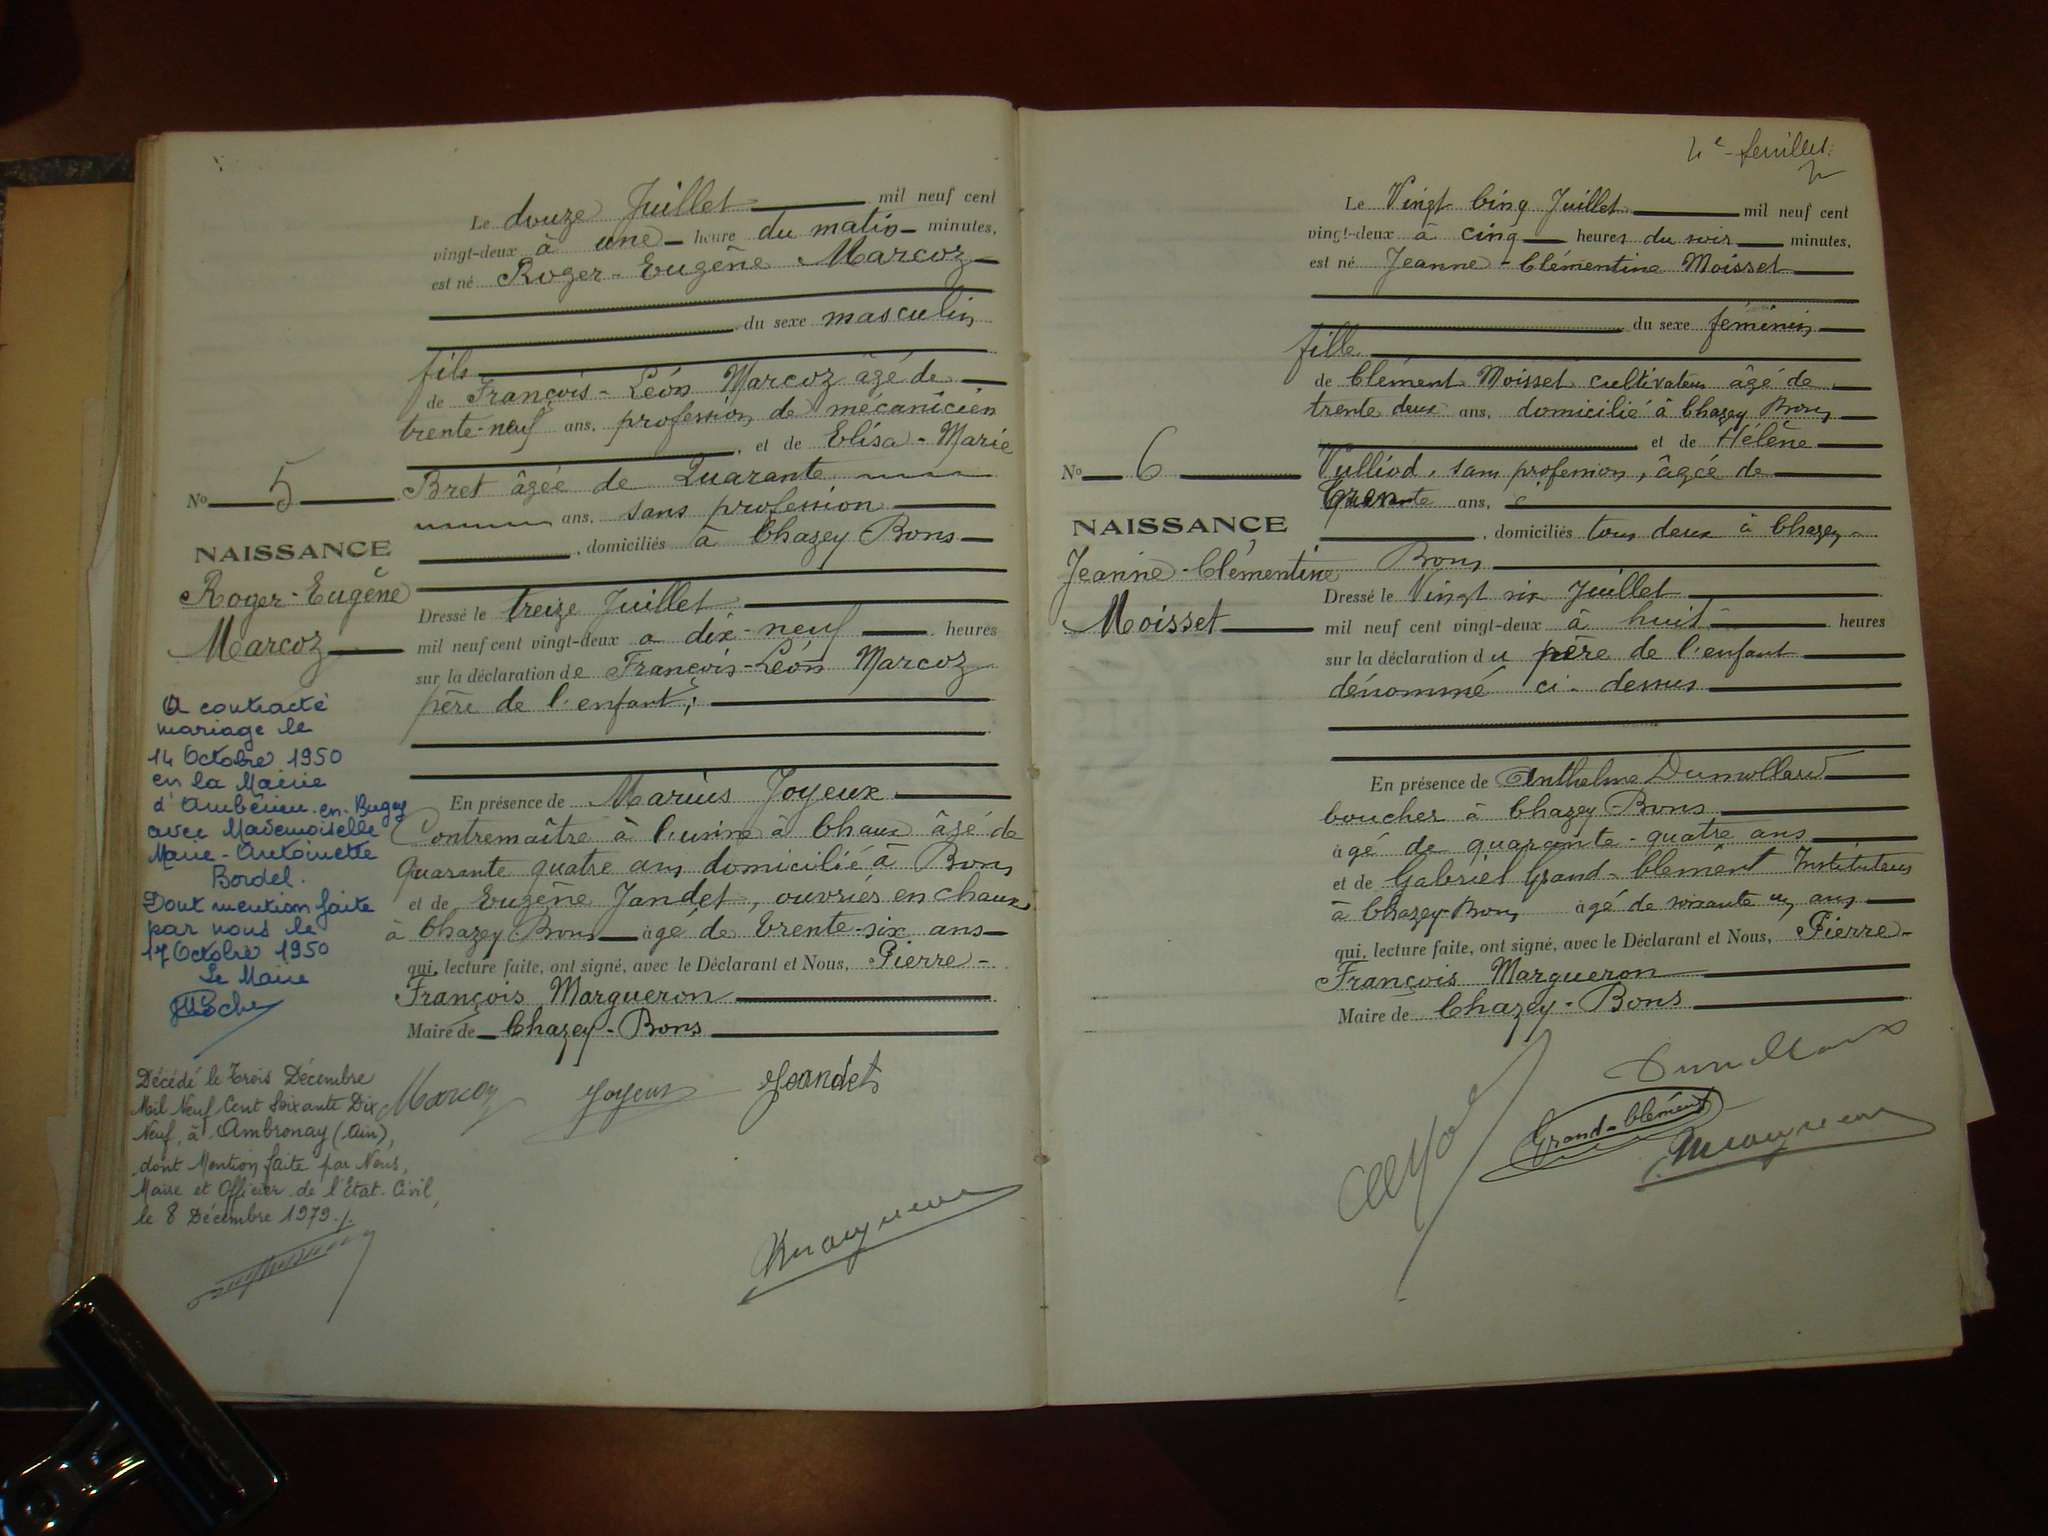 Le douze Juillet mil neuf cent
vingt-deux à une heure du matin minutes,
est né Roger-Eugène Marcoz
du sexe masculin
fils
de François-Léon Marcoz âgé de
trente-neuf ans, profession de mécanicien
, et de Elisa-Marie
Bret âgée de Quarante
ans, sans profession
, domiciliés à Chazey Bons
Dressé le treize Juillet
mil neuf cent vingt-deux a dix-neuf heures
sur la déclaration de François-Léon Marcoz
père de l'enfant;
En présence de Marius Joyeux
Contremaître à l'usine à Chaux âgé de
quarante quatre ans domicilié à Bons
et de Eugène Jandet, ouvrier en chaux
à Chazey Bons âgé de trente-six ans
qui, lecture faite, ont signé, avec le Déclarant et Nous, Pierre-
François Margueron
Maire de Chazey-Bons
Marcoz Joyeux Jeandet
Margueron
No 5
NAISSANCE
Roger-Eugène
Marcoz
A contracté
mariage le
14 Octobre 1950
en la Mairie
d'Ambérieu-en-Bugey
avec Mademoiselle
Marie-Antoinette
Bordel.
Dont mention faite
par nous le
17 Octobre 1950
Le Maire
Décédé le Trois Décembre
Mil Neuf Cent Soixante Dix
Neuf, à Ambronay (Ain),
dont Mention faite par Nous,
Maire et Officier de l'Etat-Civil,
le 8 Décembre 1979
4e feuillet
Le Vingt Cinq Juillet mil neuf cent
vingt-deux à cinq heures du soir minutes,
est né Jeanne-Clémentine Moisset
du sexe féminin
fille
de Clément Moisset cultivateur âgé de
trente deux ans, domicilié à Chazey Bons
et de Hélène
Vulliod, sans profession, âgée de
trente ans,
, domiciliés tous deux à Chazey-
Bons
Dressé le Vingt six Juillet
mil neuf cent vingt-deux à huit heures
sur la déclaration du père de l'enfant
dénommé ci-dessus
En présence de Anthelme Dumollard
boucher à Chazey-Bons
âgé de quarante-quatre ans
et de Gabriel Grand-Clément Instituteur
à Chazey-Bons âgé de soixante un ans
qui, lecture faite, ont signé, avec le Déclarant et Nous, Pierre-
François Margueron
Maire de Chazey-Bons
Dumollard
Grand-Clément
Margueron
No 6
NAISSANCE
Jeanne-Clémentine
Moisset